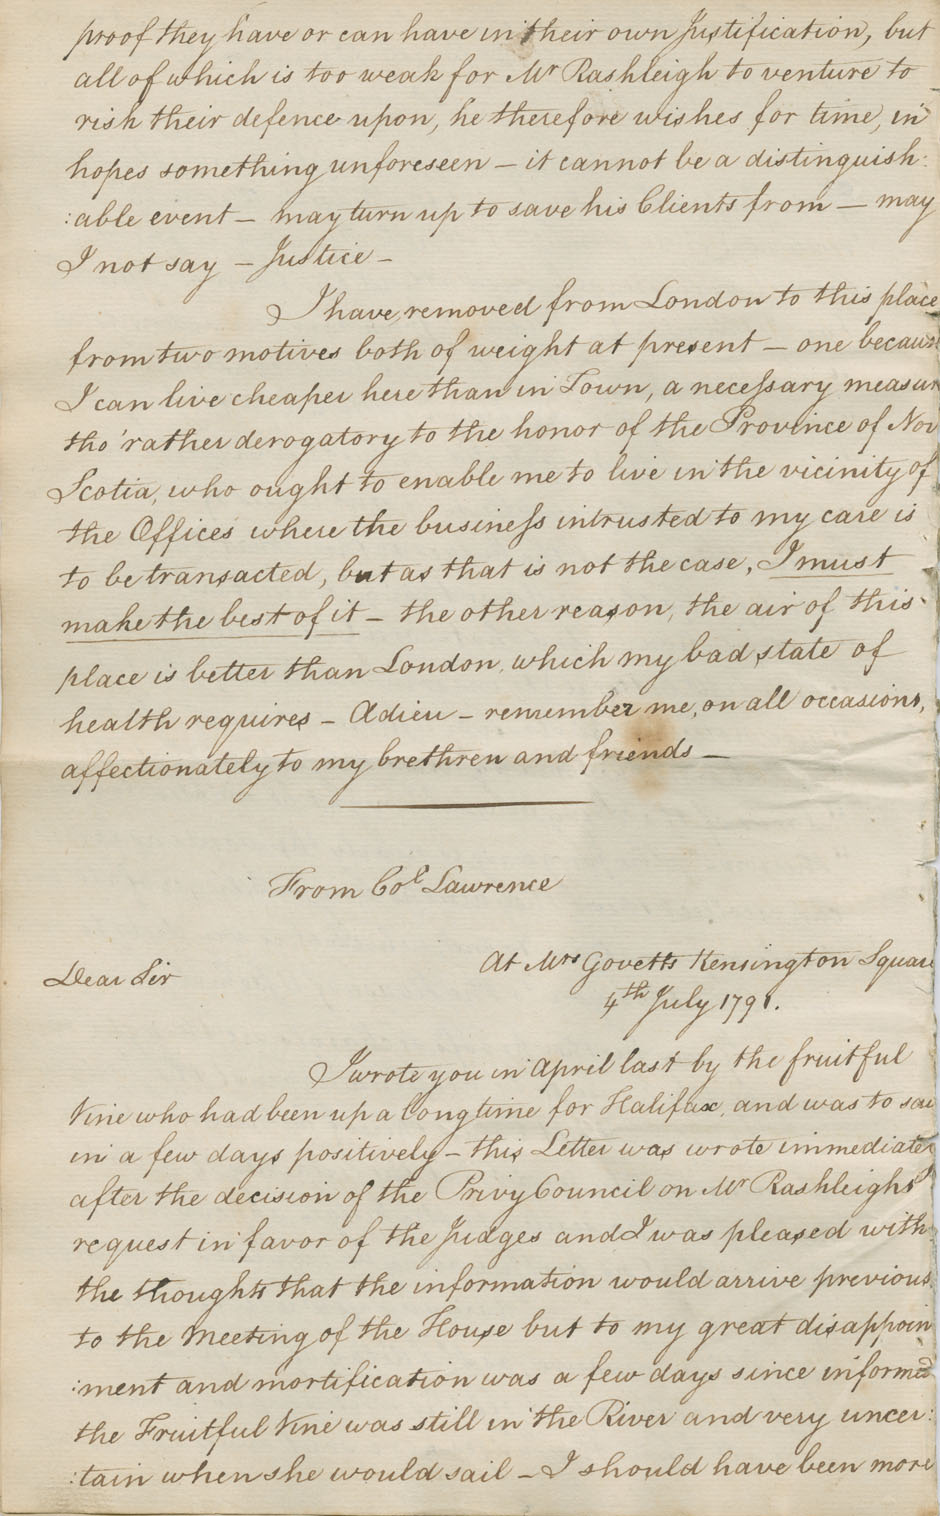 proof they have or can have in their own Justification, but
all of which is too weak for Mr Rashleigh to venture to
risk their defence upon, he therefore wishes for time, in
hopes something unforeseen – it cannot be a distinguish:
:able event – may turn up to save his Clients from – may
I not say – Justice –
I have removed from London to this place
from two motives both of weight at present – one because
I can live cheaper here than in Town, a necessary measur
tho' rather derogatory to the honor of the Province of Nov
Scotia, who ought to enable me to live in the vicinity of
the Offices where the business intrusted to my care is
to be transacted, but as that is not the case, I must
make the best of it – the other reason, the air of this
place is better than London, which my bad state of
health requires – Adieu – remember me, on all occasions,
affectionately to my brethren and friends –
From Col Lawrence
At Mrs Govetts Kensington Square
Dear Sir
4th July 1791.
I wrote you in April last by the fruitful
Vine who had been up a long time for Halifax, and was to sai
in a few days positively – this Letter was wrote immediatel
after the decision of the Privy Council on Mr Rashleighs
request in favor of the Judges and I was pleased with
the thoughts that the information would arrive previous
to the Meeting of the House but to my great disappoin
:ment and mortification was a few days since informed
the Fruitful Vine was still in the River and very uncer:
:tain when she would sail – I should have been more